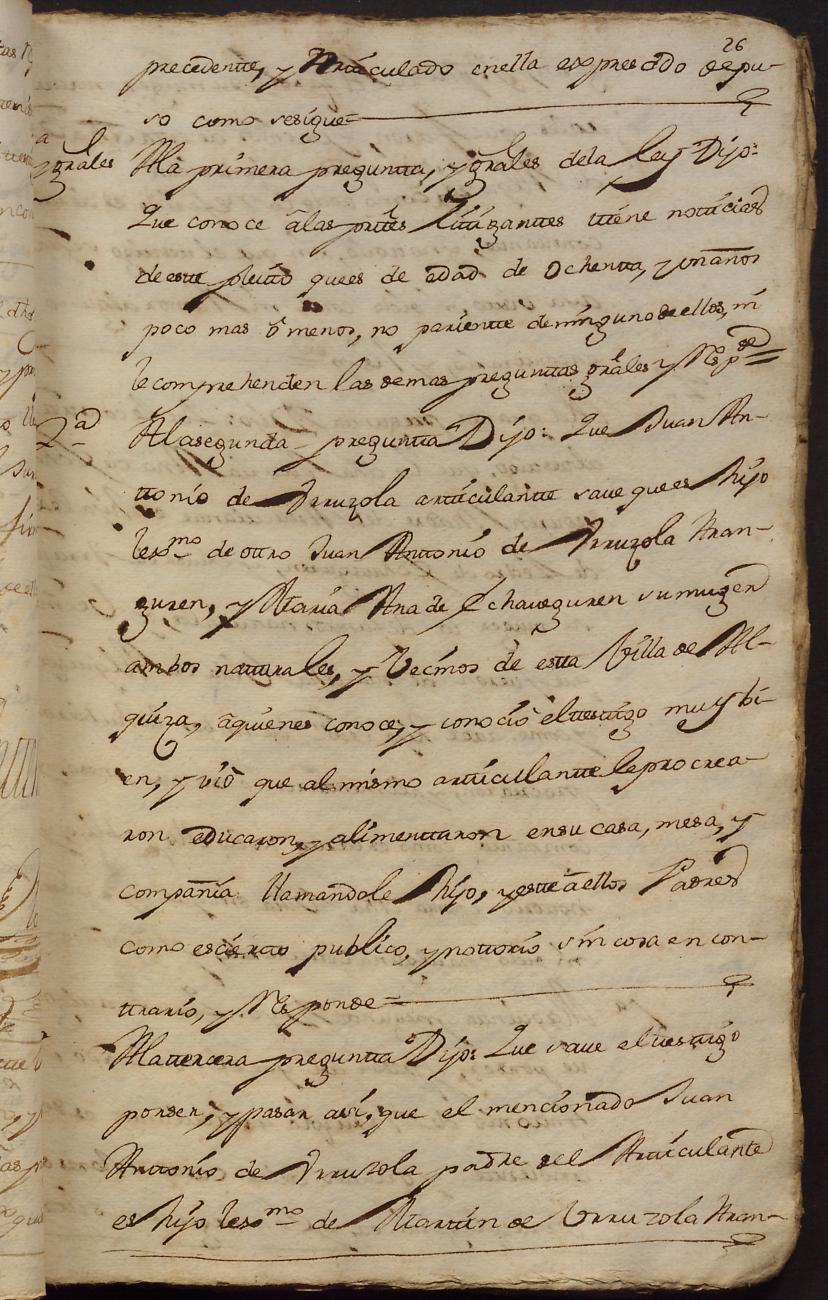 26
precedentte, y Artticulado en ella expresado depu-
so como sesigue=
grales Ala primera preguntta, y grâles dela ley Dijo:
Que conoce âlas prttes Littigantes ttiene notticias
de estte pleitto que es de edad de Ochentta, y un años
poco mas ô menos, no parientte de ninguno de ellos, ni
le comprehenden las demas preguntas grâles y Resp.de=
2.a Ala segunda preguntta Dijo: Que Juan An-
ttonio de Urruzola artticulantte save que es hijo
lexmo de ottro Juan Anttonio de Urruzola Aran-
guren, y Maria Ana de Echaveguren su muger
ambos natturales, y Vecinos de estta Villa de Al-
quiza, âquienes conoce, y conociô el testtigo muy bi-
en, y viô que al mismo artticulantte le procrea-
ron educaron, y alimenttaron en su casa, mesa, y
compañia llamandole hijo, y estte â ellos Padres
como es cierto publico, y nottorio sin cosa en con-
ttrario, y Responde=
Ala ttercera preguntta Dijo: Que save el testtigo
por ser, y pasar asi, que el mencionado Juan
Anttonio de Urruzola padre del Artticulante
es hijo lexmo de Marttin de Urruzola Aran-